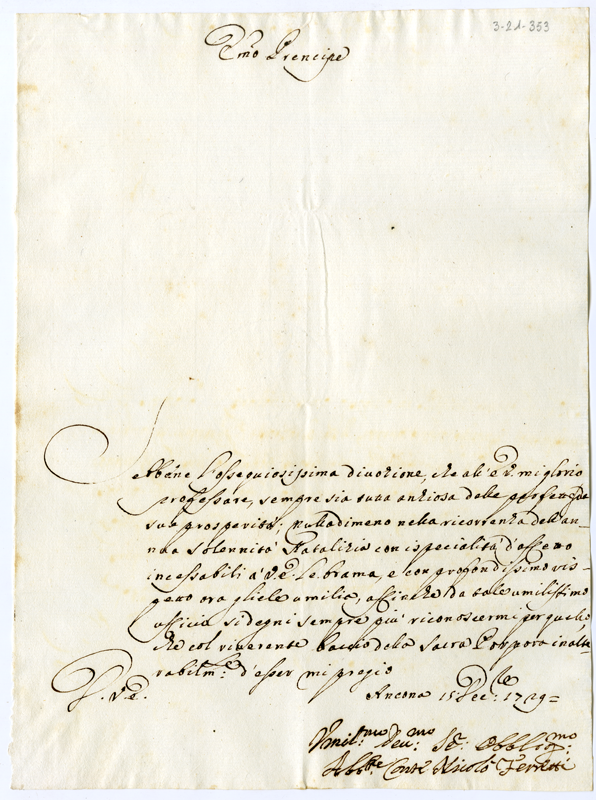 3-21-353
Emo Prencipe
Sebbene l'ossequiosissima divozione, che all' E. V. mi glorio
professare, sempre sia tutta anziosa delle
sue prosperità; nulladimeno nella ricorrenza dell'an-
nua solennità Natalizia con ispecialità d'affetto
incessabili à V. E. le brama, e con profondissimo ris-
petto ora gliele umilia, affinche da tale umilissimo
officio si degni sempre più riconoscermi per quello,
che col riverente baccio della Sacra Porpora inalte-
rabilm.e d'esser mi pregio
D. V. E.
Ancona 15 Dec.: 1729=
Vmil.mo Deu.mo Se. Obblig.mo
Abb.te Conte Nicolò Ferretti